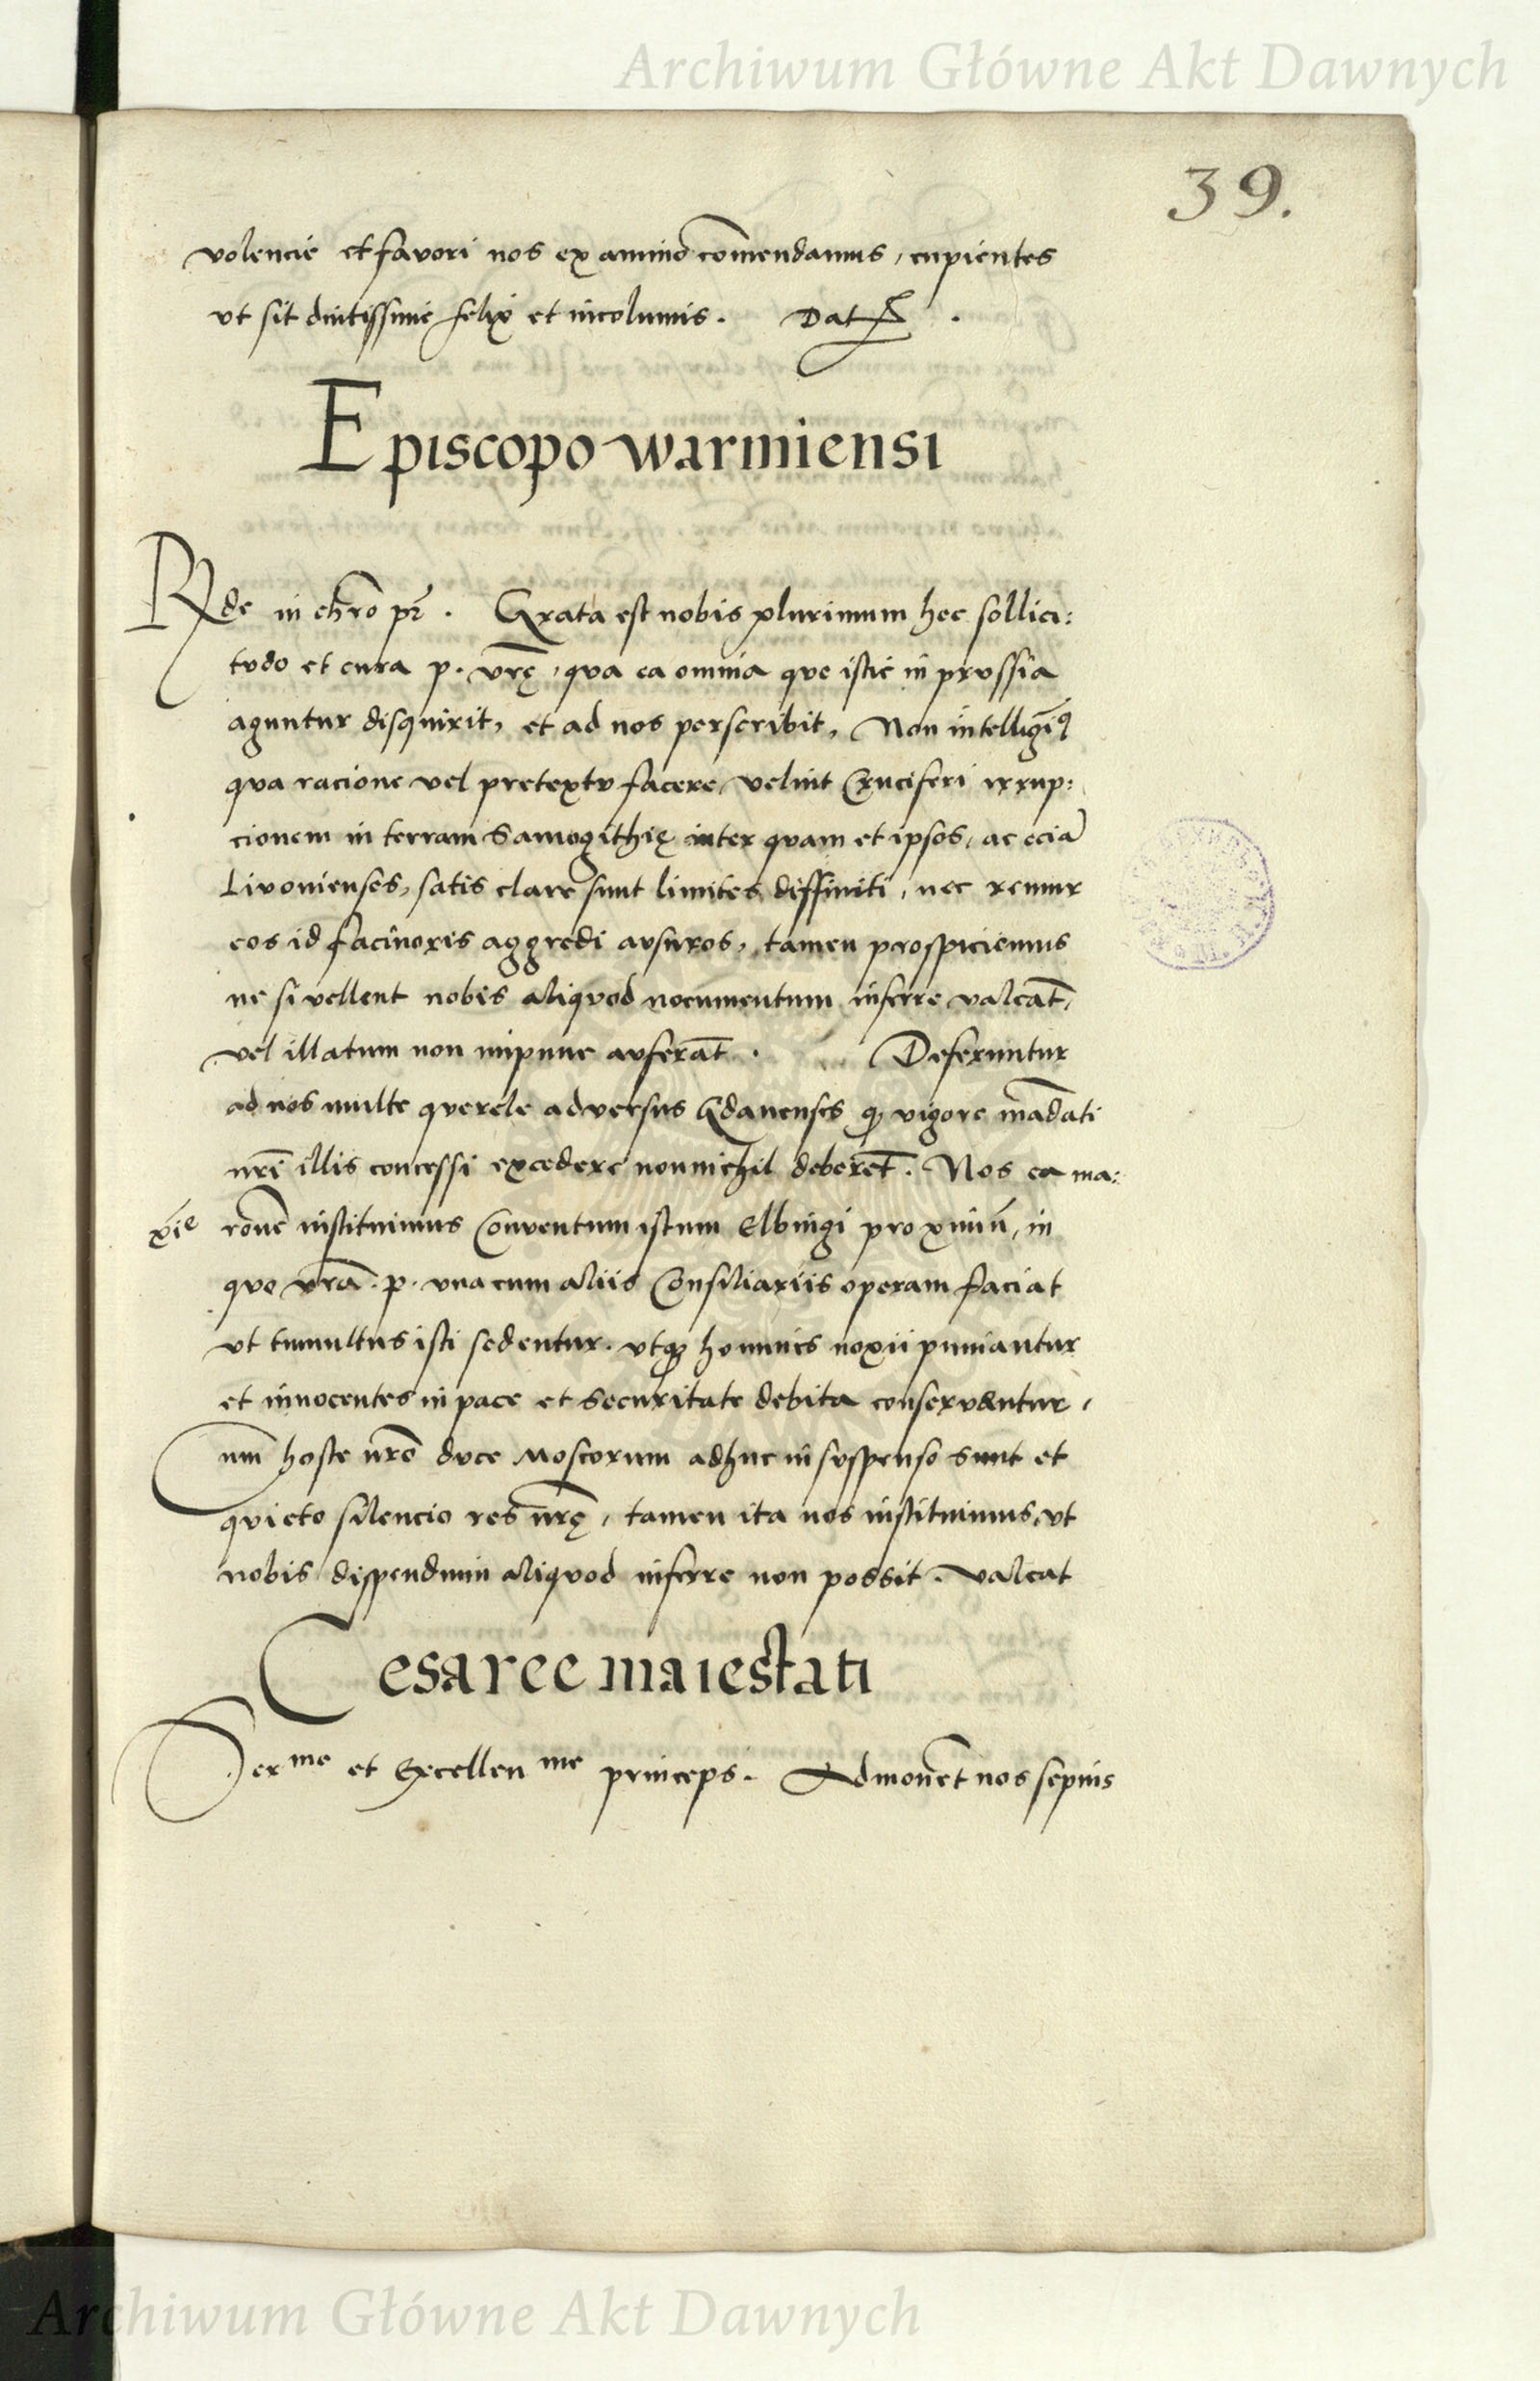 Archiwum Główne Akt Dawnych
39.
volencie et favori nos ex animo com̄endamus, cupientes
vt sit diutissime felix et incolumis. Dat
Episcopo warmiensi
Rde in chr̄o pr̄. Grata est nobis plurimum hec sollici:
tvdo et cura p. vr̄ę, qva ea omnia qve istic in prvssia
aguntur disquirit, et ad nos perscribit, Non intelligim̄9
qva racione vel pretextv facere velint Cruciferi irrup:
cionem in terram Samogithię inter qvam et ipsos, ac eciā
Livonienses, satis clare sunt limites diffiniti, nec remur
eos id facinoris aggredi avsuros, tamen prospiciemus
ne si vellent nobis aliqvod nocumentum inferre valeāt,
vel illatum non impune avferāt. Deferuntur
ad nos multe qverele adversus Gdanenses qꝫ vigore man̄dati
nr̄i illis concessi excedere nonnichil deberēt. Nos ea ma:
xīe
ronē instituimus Conventum istum Elbingi proximū, in
qvo vrā. p. vna cum aliis Consiliariis operam faciat
vt tumultus isti sedentur. vtqꝫ homines noxii puniantur
et innocentes in pace et securitate debita conserventur,
Cum hoste nr̄o dvce Moscorum adhuc in svspenso sunt et
qvieto silencio res nr̄ę, tamen ita nos instituimus, vt
nobis dispendium aliqvod inferre non possit. valeat
Cesaree maiestati
Serme et Excellenme princeps. Admonēt nos sepius
Archiwum Główne Akt Dawnych